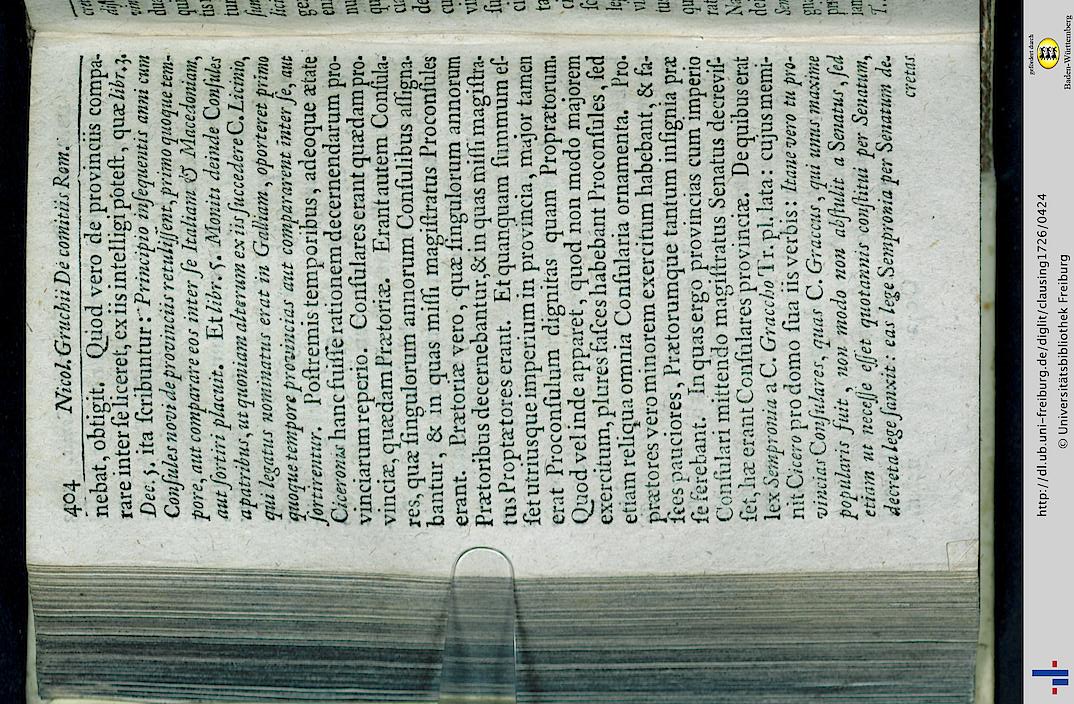 404 Nicol. Gruchii De comitiis Rom.
nebat, obtigit. Quod vero de provinciis compa-
rare inter ſe liceret, ex iis intelligi poteſt, quæ libr. 3.
Dec. 3. ita ſcribuntur: Principio inſequentis anni cum
Conſules non de provinciis retuliſſent, primo quoque tem-
pore, aut comparare eos inter ſe Italiam & Macedoniam,
aut ſortiri placuit. Et libr. 5. Moniti deinde Conſules
a patribus, ut quoniam alterum ex iis ſuccedere C. Licinio,
qui legatus nominatus erat in Galliam, oporteret primo
quoque tempore provincias aut compararent inter ſe, aut
ſortirentur. Poſtremis temporibus, adeoque ætate
Ciceronis hanc fuiſſe rationem decernendarum pro-
vinciarum reperio. Conſulares erant quædam pro-
vinciæ, quædam Prætoriæ. Erant autem Conſula-
res, quæ ſingulorum annorum Conſulibus aſſigna-
bantur, & in quas miſſi magiſtratus Proconſules
erant. Prætoriæ vero, quæ ſingulorum annorum
Prætoribus decernebantur, & in quas miſſi magiſtra-
tus Proprætores erant. Et quanquam ſummum eſ-
ſet utriusque imperium in provincia, major tamen
erat Proconſulum dignitas quam Proprætorum.
Quod vel inde apparet, quod non modo majorem
exercitum, plures faſces habebant Proconſules, ſed
etiam reliqua omnia Conſularia ornamenta. Pro-
prætores vero minorem exercitum habebant, & fa-
ſces pauciores, Prætorumque tantum inſignia præ
ſe ferebant. In quas ergo provincias cum imperio
Conſulari mittendo magiſtratus Senatus decreviſ-
ſet, hæ erant Conſulares provinciæ. De quibus erat
lex Sempronia a C. Graccho Tr. pl. lata: cujus memi-
nit Cicero pro domo ſua iis verbis: Itane vero tu pro-
vincias Conſulares, quas C. Graccus, qui unus maxime
popularis fuit, non modo non abſtulit a Senatus, ſed
etiam ut neceſſe eſſet quotannis conſtitui per Senatum,
decreta lege ſanxit: eas lege Sempronia per Senatum de-
cretas
http://dl.ub.uni-freiburg.de/diglit/clausing1726/0424
© Universitätsbibliothek Freiburg
gefördert durch
Baden-Württemberg